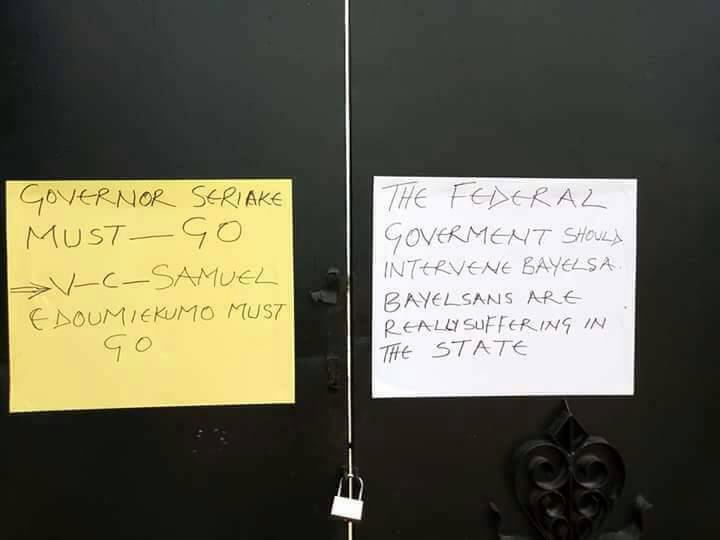 GOVERNOR SERIAKE
MUST — GO
⇒ V-C-SAMUEL
EDOUMIEKUMO MUST
GO
THE FEDERAL
GOVERMENT SHOULD
INTERVENE BAYELSA.
BAYELSANS ARE
REALLY SUFFERING IN
THE STATE